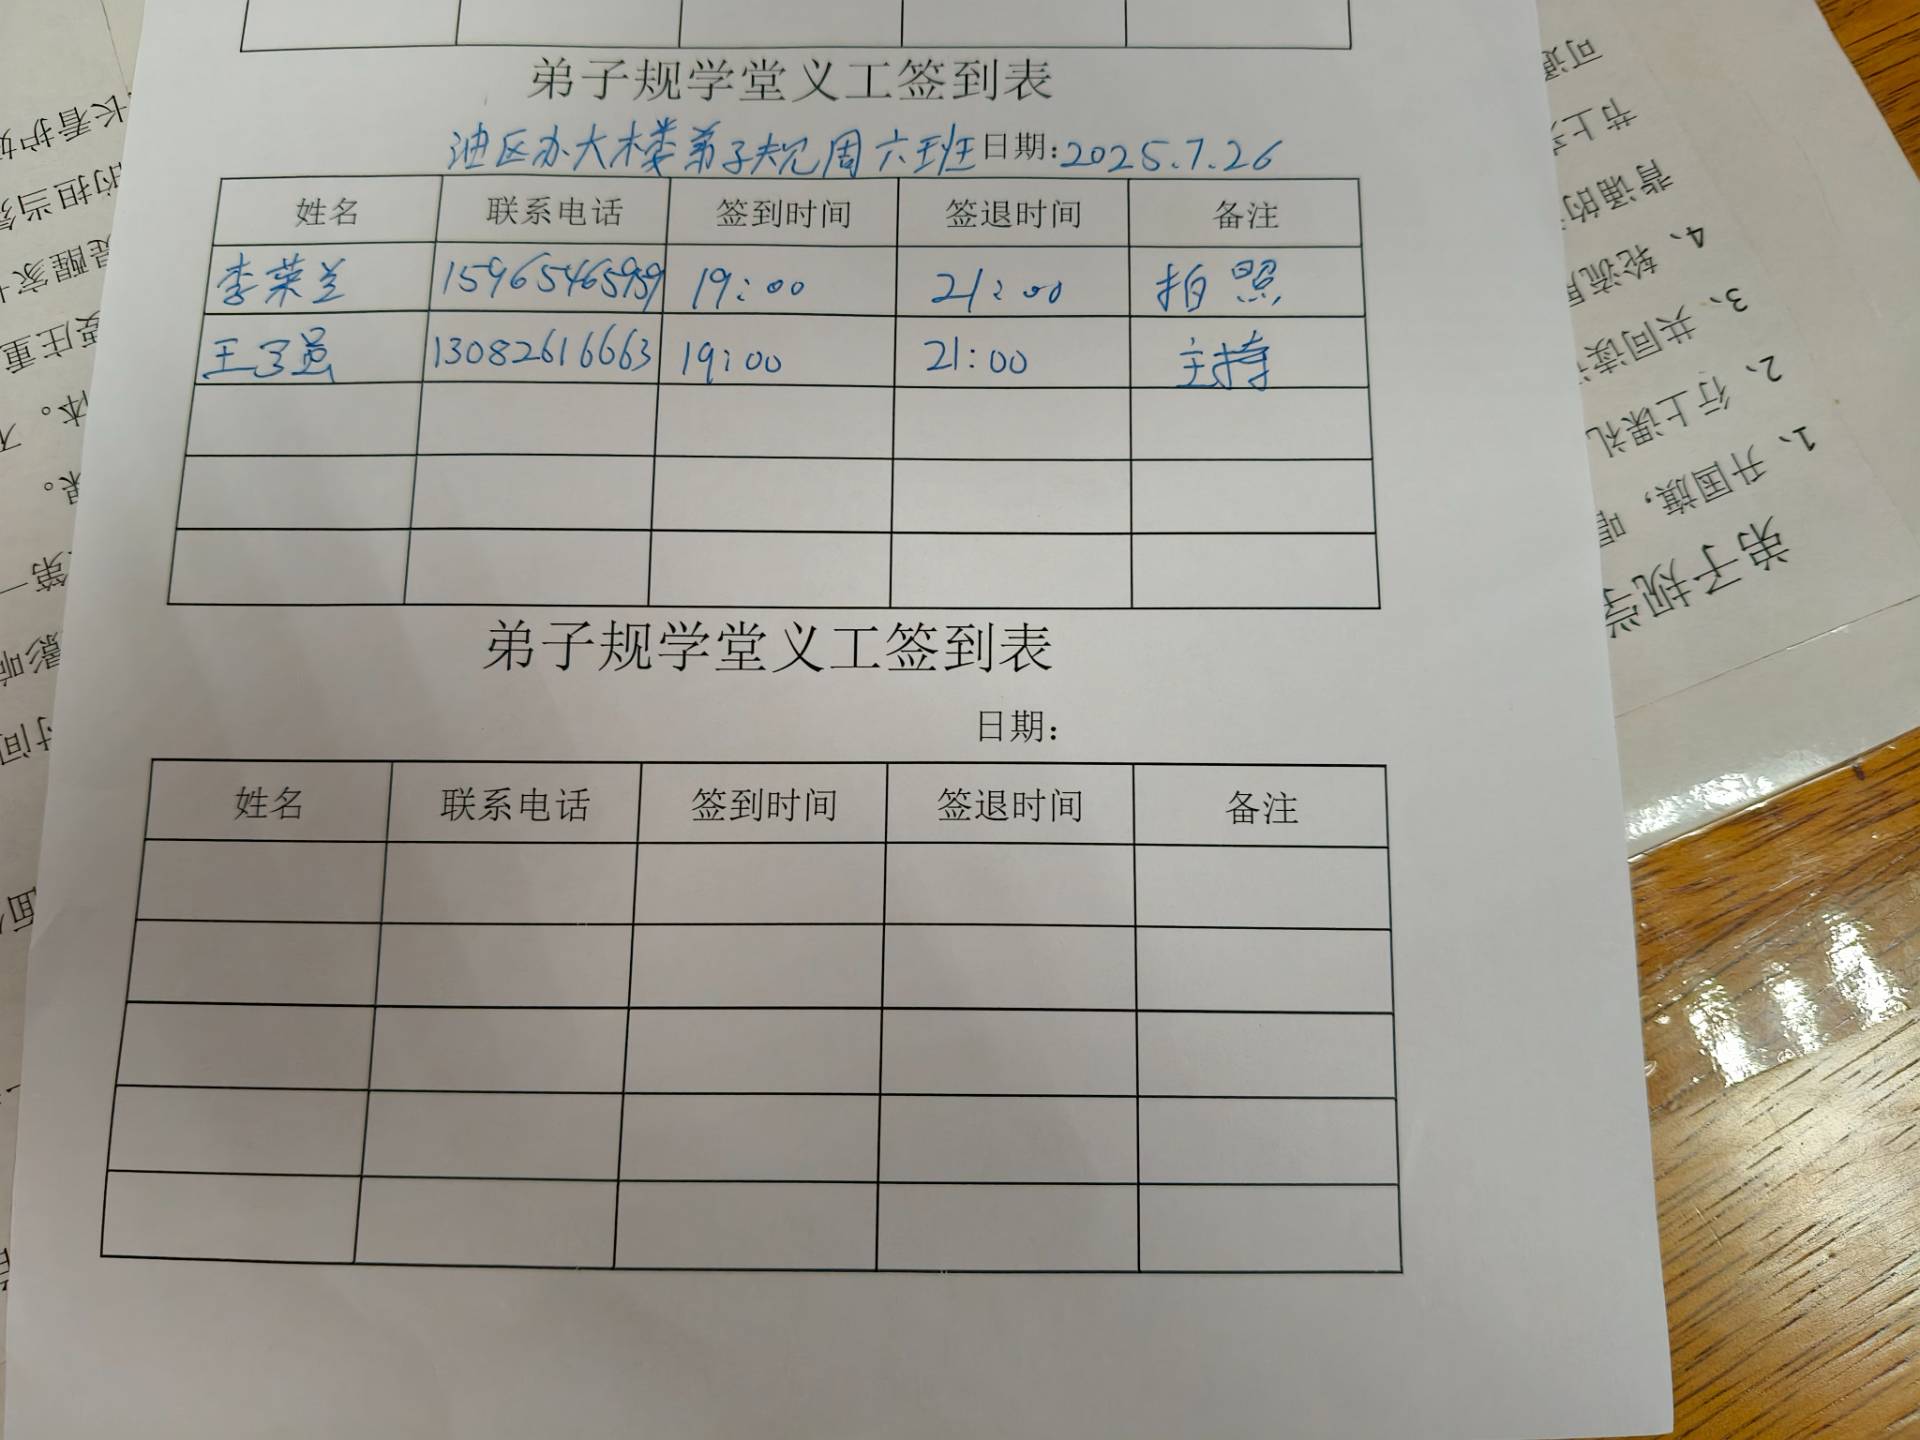 弟子规学堂义工签到表
油区办大楼弟子规周六班 日期:2025.7.26
姓名 联系电话 签到时间 签退时间 备注
李荣兰 19:00 21:00 拍照
王 13082616663 19:00 21:00 主持
弟子规学堂义工签到表
日期:
姓名 联系电话 签到时间 签退时间 备注
弟子规学
1、升国旗，唱
2、行上课礼
3、共同读
4、轮流
背诵的
节上
可
长看护
的担当
提醒家
庄重
体。
课。
第一
影响
时间